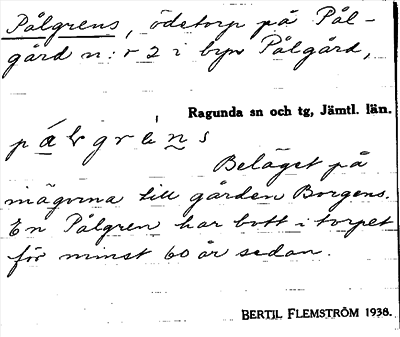 Pålgrens, ödetorp på Pål-
gård n:r 2 i byn Pålgård,
Ragunda sn och tg, Jämtl. län.
Beläget på
ägorna till gården Borgens.
En Pålgren har bott i torpet
för minst 60 år sedan.
BERTIL FLEMSTRÖM 1938.